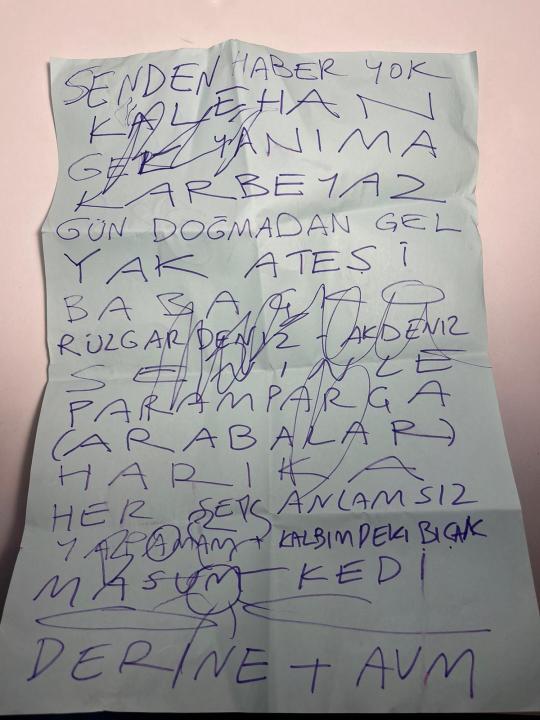 SENDEN HABER YOK
KALEHAN
GEL YANIMA
KARBEYAZ
GÜN DOĞMADAN GEL
YAK ATEŞİ
BABA
RÜZGAR DENİZ - AKDENIZ
SENİNLE
PARAMPARÇA
(ARABALAR)
HARIKA
HER ŞEY ANLAMSIZ
YAZAMAM + KALBIMDEKI BIÇAK
MASUM - KEDİ
DERINE + AVM